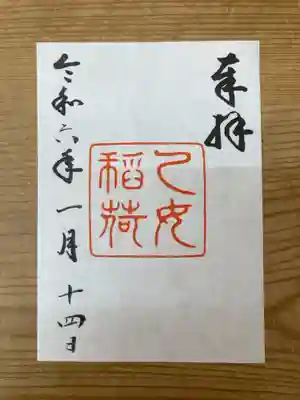 奉拝
乙女
稲荷
令和六年一月十四日